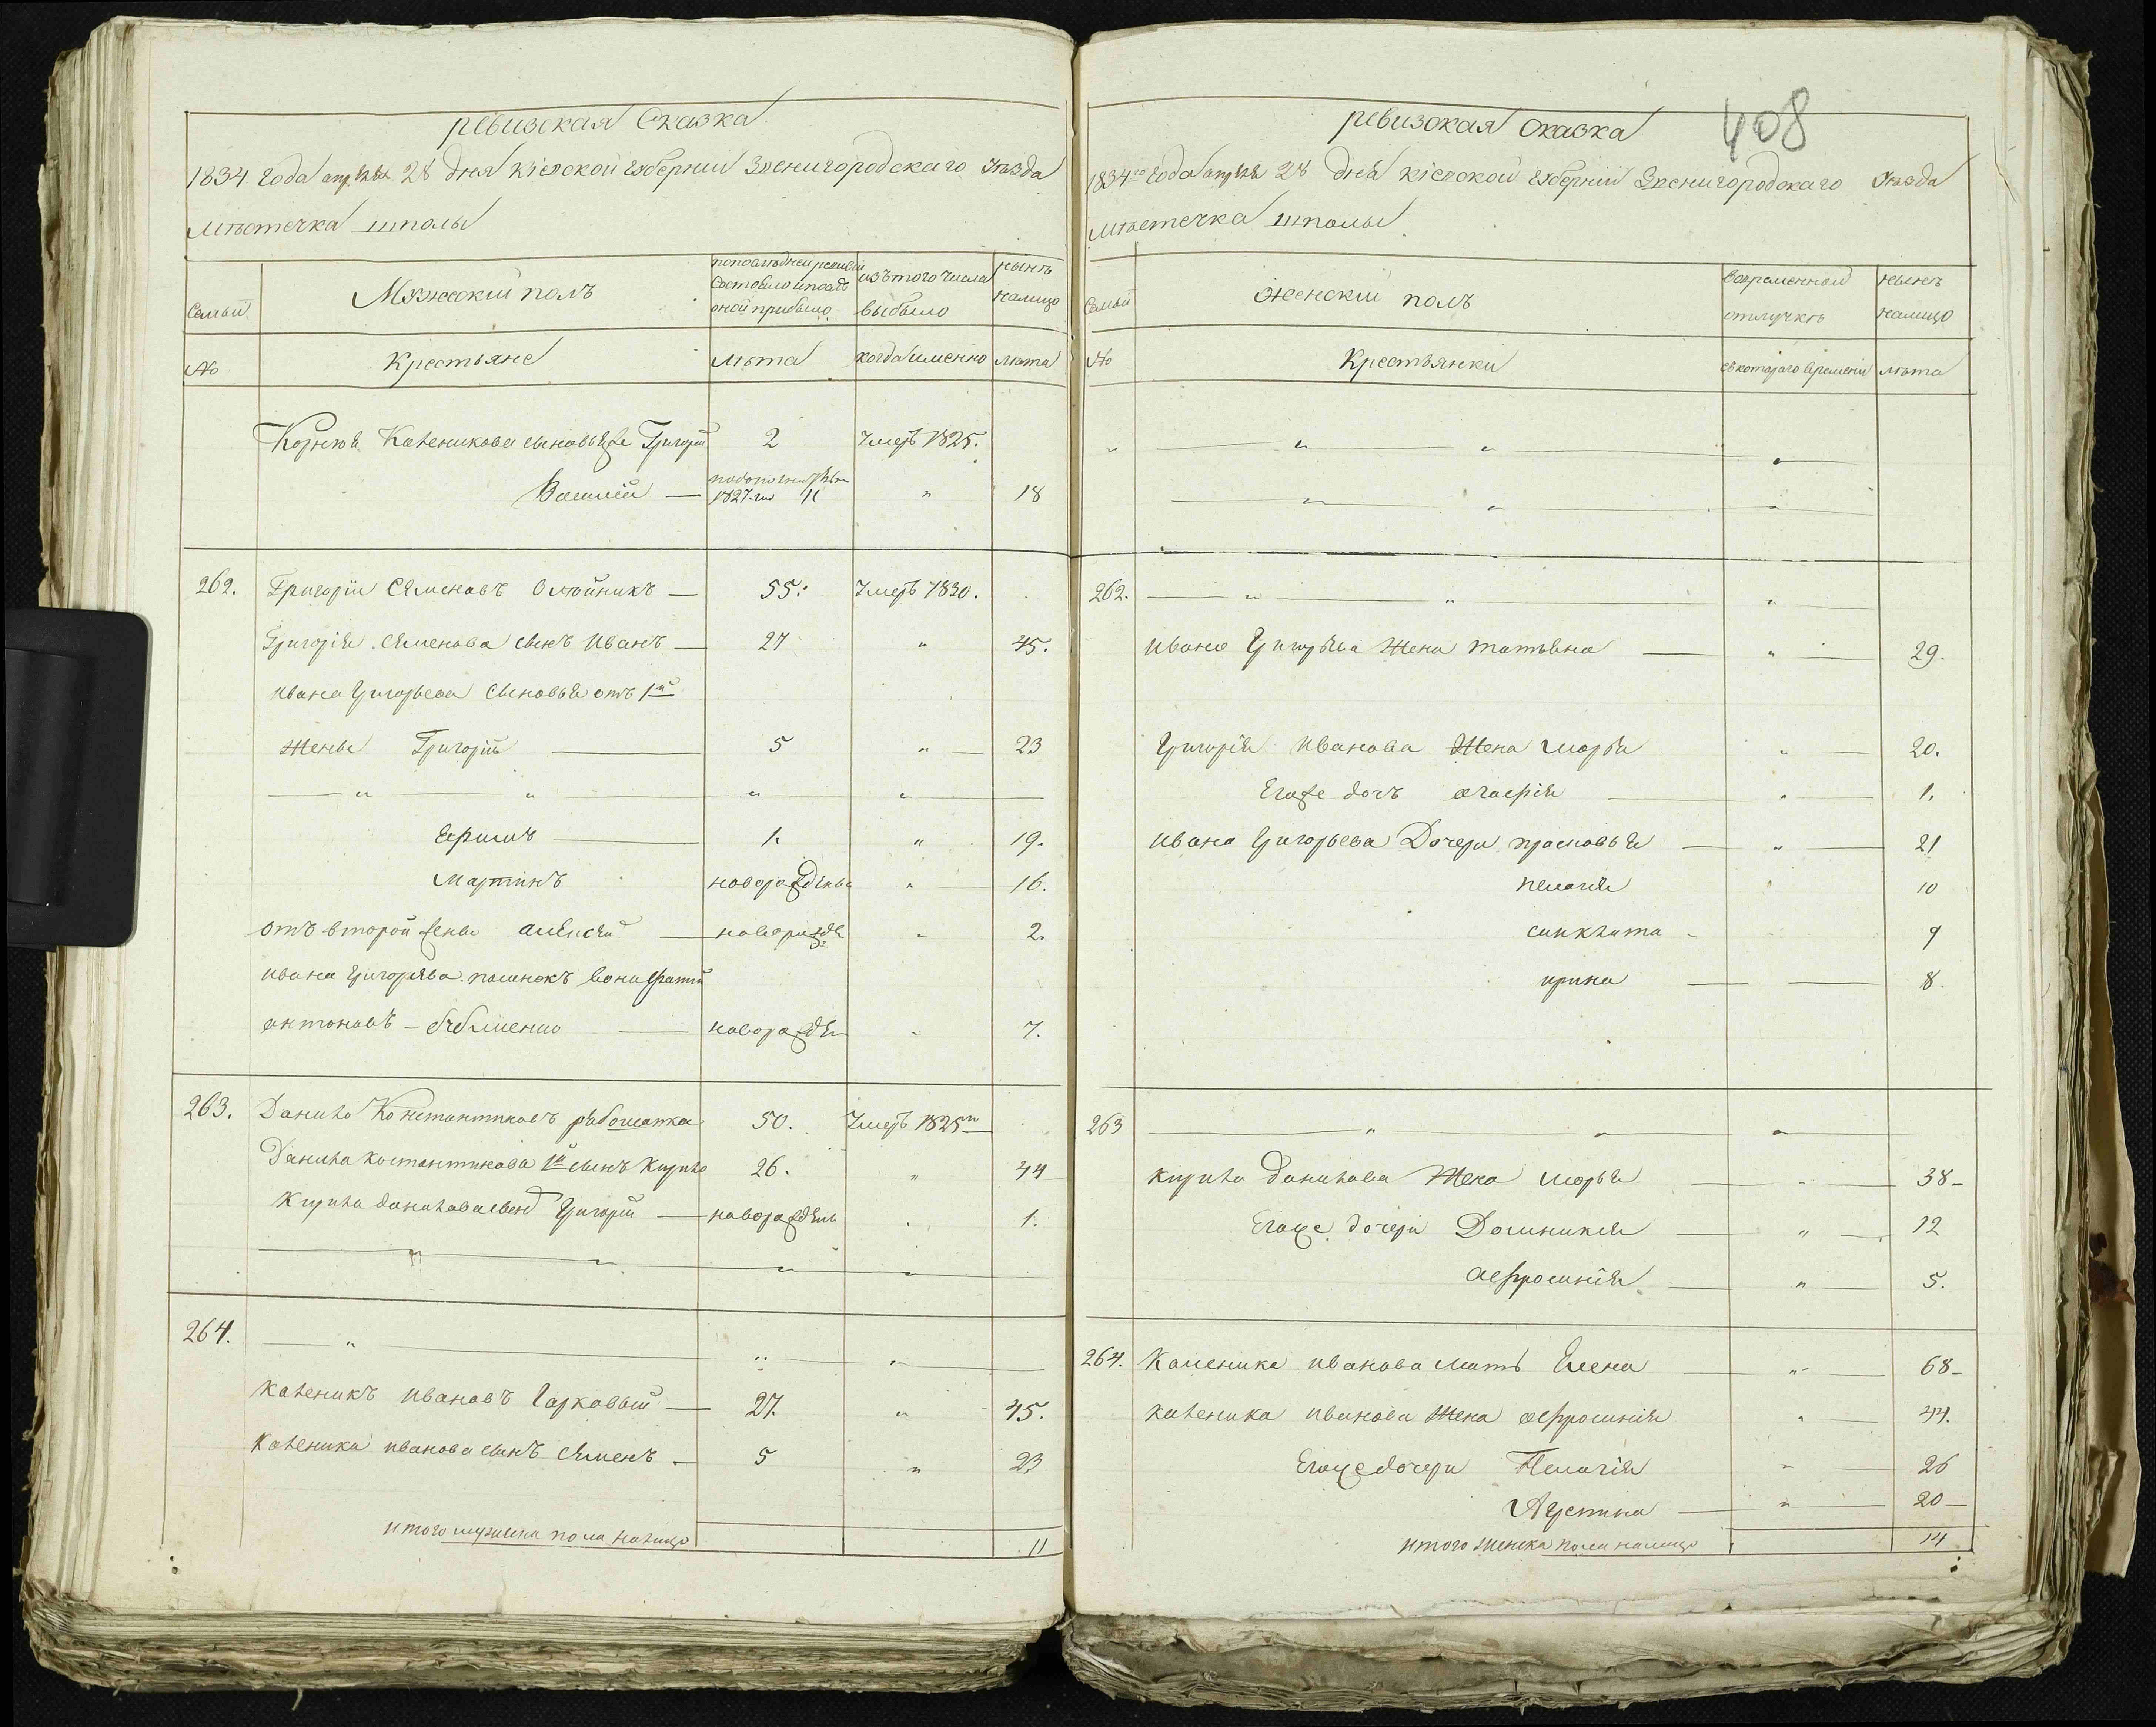 ревизская сказка
1834 года апреля 28 дня кіевской губерніи Звенигородскаго уезда
местечка шполы
Семьи
Мужескій полъ
попоследней ревизіи состояло и после оной прибыло
изътого числа выбыло
ныне налицо
№
Крестьяне
лета
когда именно
лета
Каленикова сыновья Григорій 2 умеръ 1825.
Василій — 1827 11 " 18
262. Григорій Семеновъ Олейникъ — 55. умеръ 1830.
Григорія Семенова сынъ Иванъ — 27 " 45.
Ивана Григорьева сыновья отъ 1й
жены Григорій — 5 " 23
Ефимъ — 1. " 19.
Мартинъ новорожденъ " 16.
отъ второй жены Алексей — новорожде " 2.
Ивана Григорьева пасинокъ Вонифатій
Антоновъ — новорожден 7.
263. Данило Константиновъ 50. умеръ 1825го
Данила Костантинова 1й сынъ Кирило 26. " 44
Кирила Данилова сынъ Григорій — новорожденъ 1.
264. — " " "
Каленикъ Ивановъ Гарковый — 27. " 45.
Каленика Иванова сынъ Семенъ — 5 " 23
итого мужеска пола налицо 11
408
ревизская сказка
1834го года апреля 28 дня кіевской губерніи Звенигородскаго уезда
местечка шполы
Семьи
женскій полъ
вовременной отлучке
ныне налицо
№
Крестьянки
скотораго времени
лета
262. — " " "
Ивана Григорьева жена татьяна — " — 29.
Григорія Иванова жена марья " — 20.
Егоже дочь — " — 1.
Ивана Григорьева Дочери прасковья — " — 21
пелагія 10
синклита 9
ирина — — 8.
263 — " " "
кирила Данилова жена марья — " — 38
Егоже дочери Домникія — " — 12
Аефросинія — " — 5.
264. Каленика Иванова мать Елена — " — 68
каленика Иванова жена аефросинія " — 44.
Егоже дочери Пелагія " — 26
Аустина — " — 20
итого женска пола налицо 14